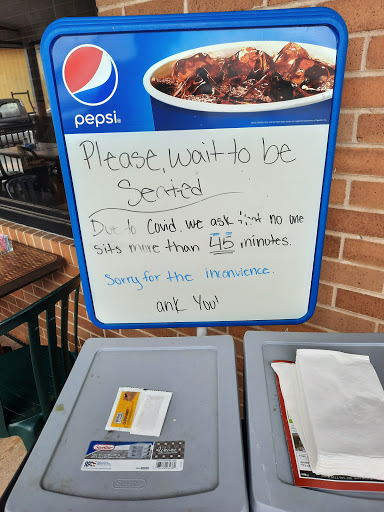 pepsi
Please, wait to be
Seated
Due to Covid. we ask that no one
sits more than 45 minutes.
Sorry for the inconvience.
ank You!